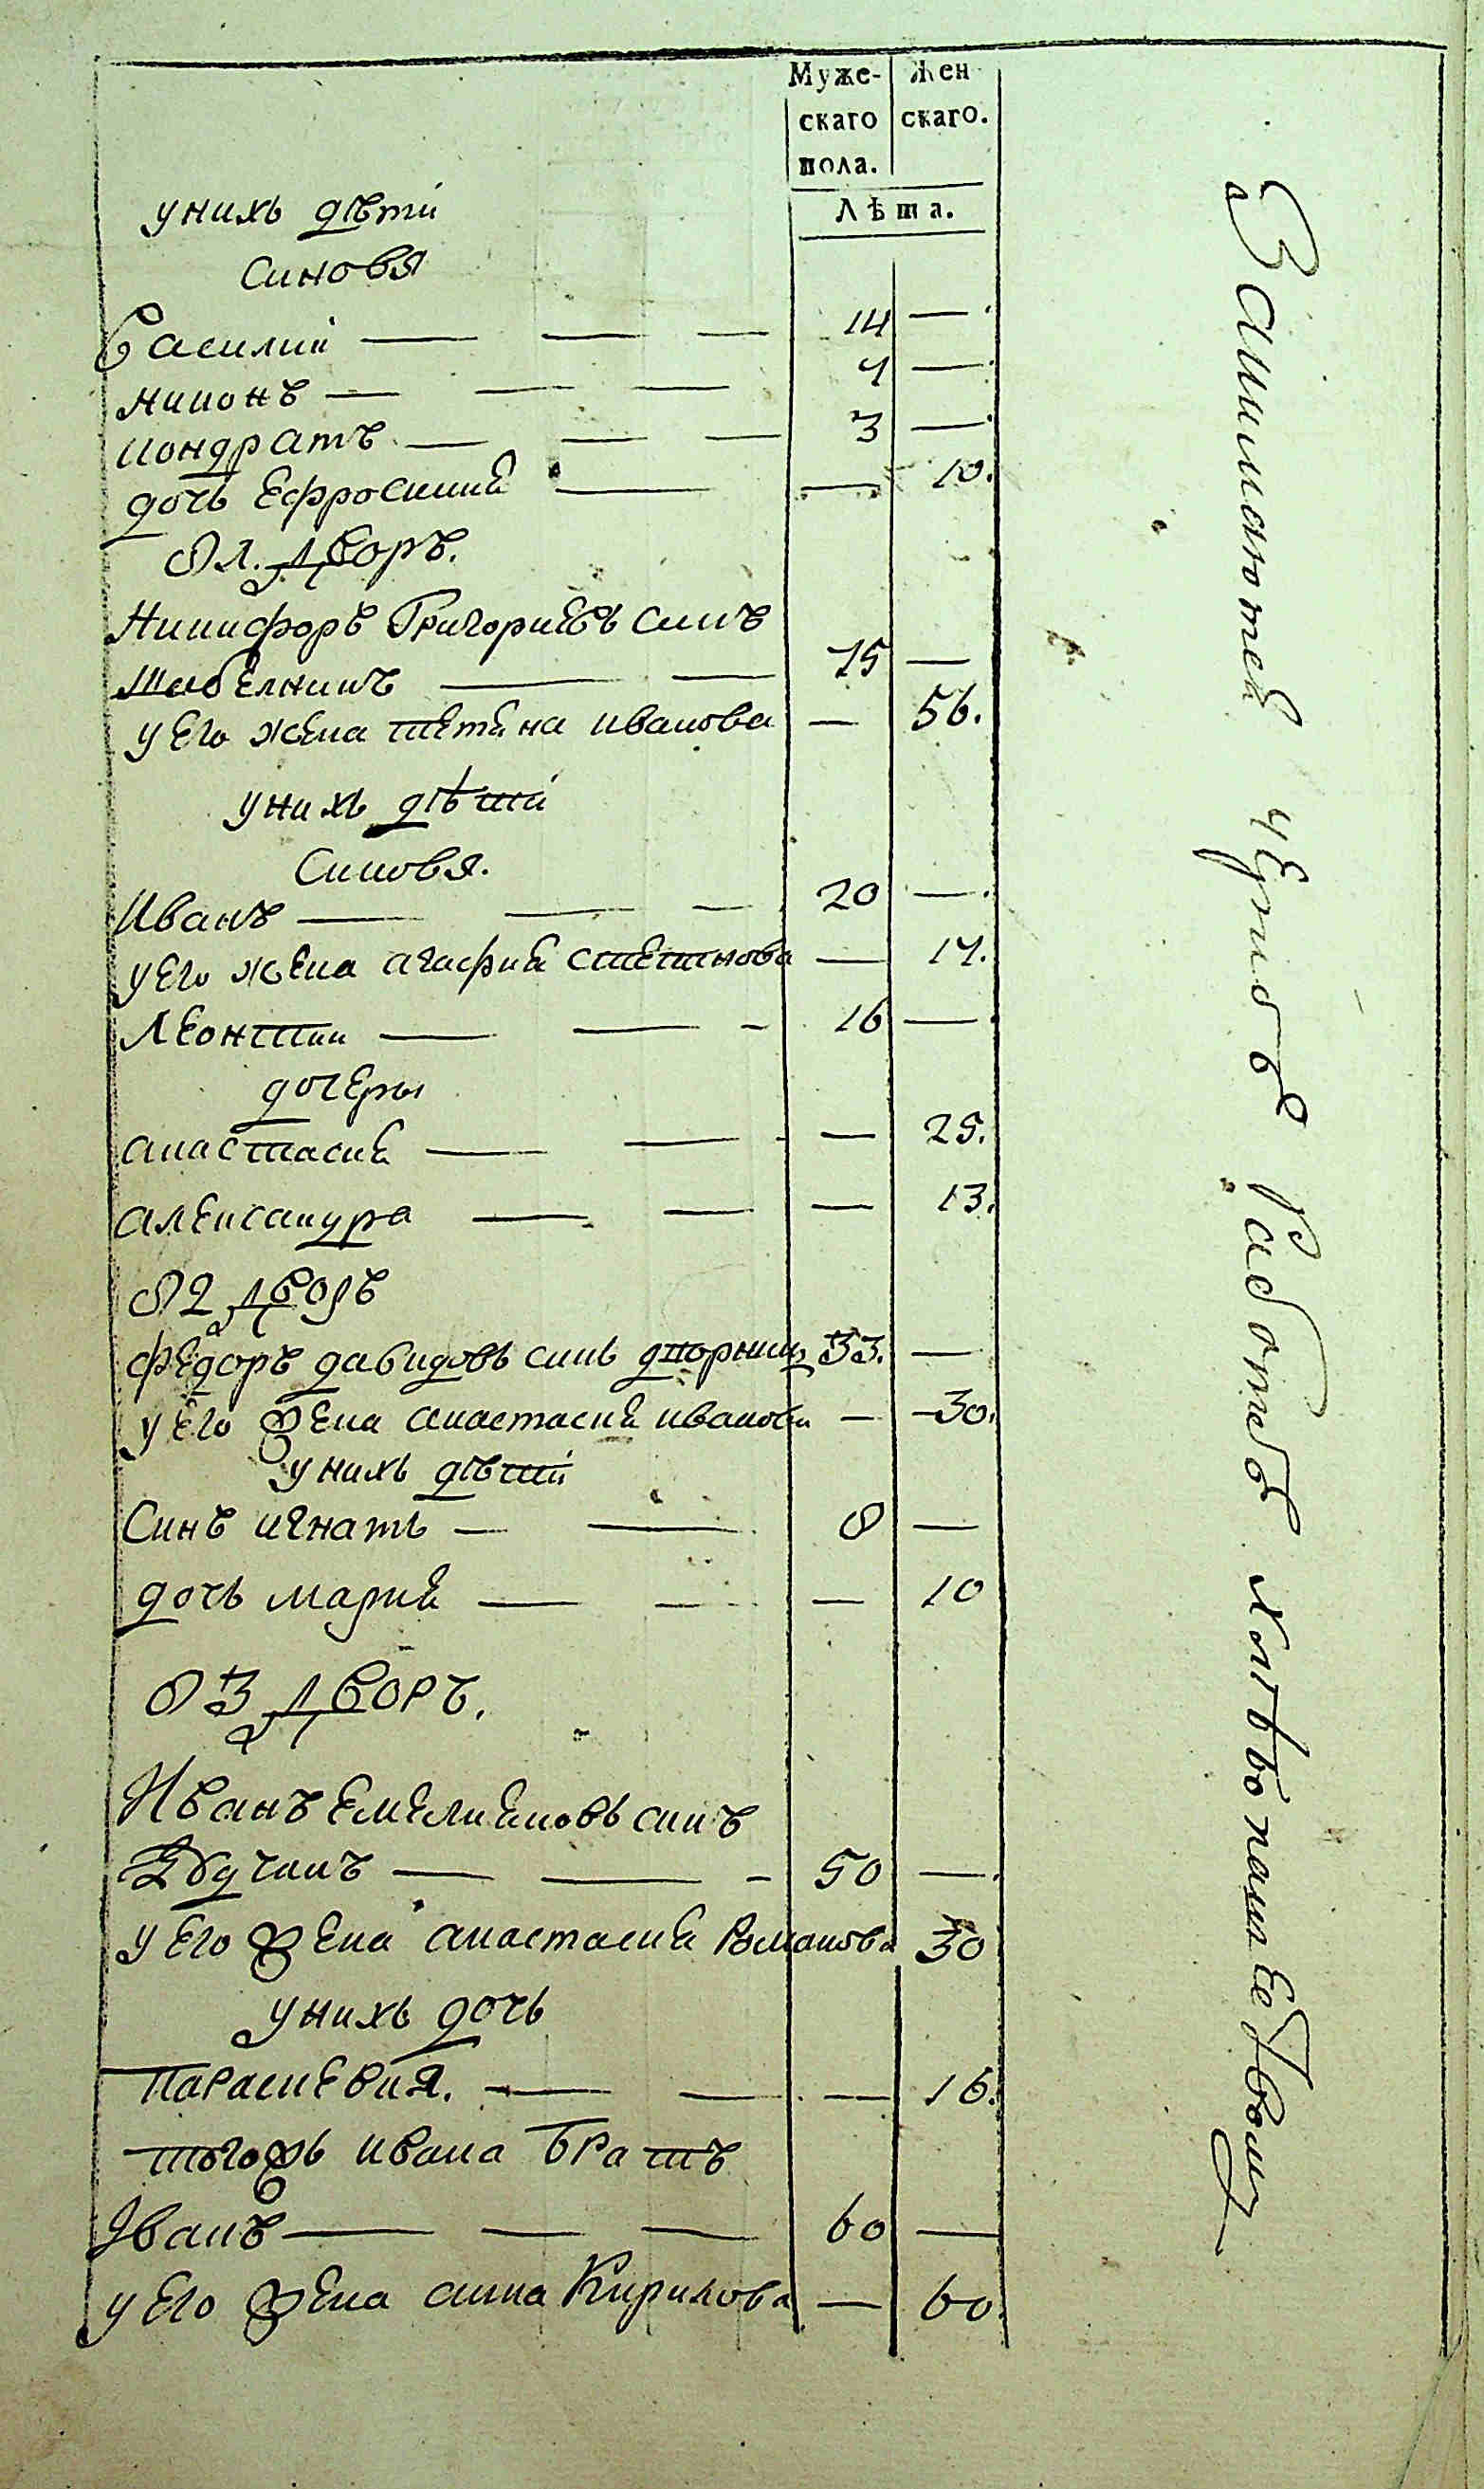 Муже-
скаго
пола.
Жен
скаго.
Лѣта.
унихь дѣти
синовя
Василии — — — 14 —
никонъ — — — 7 —
кондратъ — — — 3 —
дочь Ефросиния — — 10.
81. Дворъ.
Никифоръ Григориевъ синъ
— — 75 —
у его жена тетяна иванова — 56.
унихь дѣти
Синовя.
Иванъ — — — 20 —
у его жена агафия степанова — 17.
Леонтии — — — 16 —
дочеры
анастасия — — — 25.
александра — — — 13.
82 Дворъ
федоръ давидовъ синъ дворник 33. —
у его жена анастасия иванова — 30.
унихь дѣти
Синъ игнатъ — — 8 —
дочь мария — — — 10
83 Дворъ.
Иванъ Емелияновъ синъ
— — — 50 —
у его жена анастасия Романова 30
унихь дочь
Параскевия. — — — 16.
тогожь ивана братъ
Іванъ — — — 60 —
у его жена анна Кирилова — 60.
Занимаются черновъ работаб хлѣбопашеством